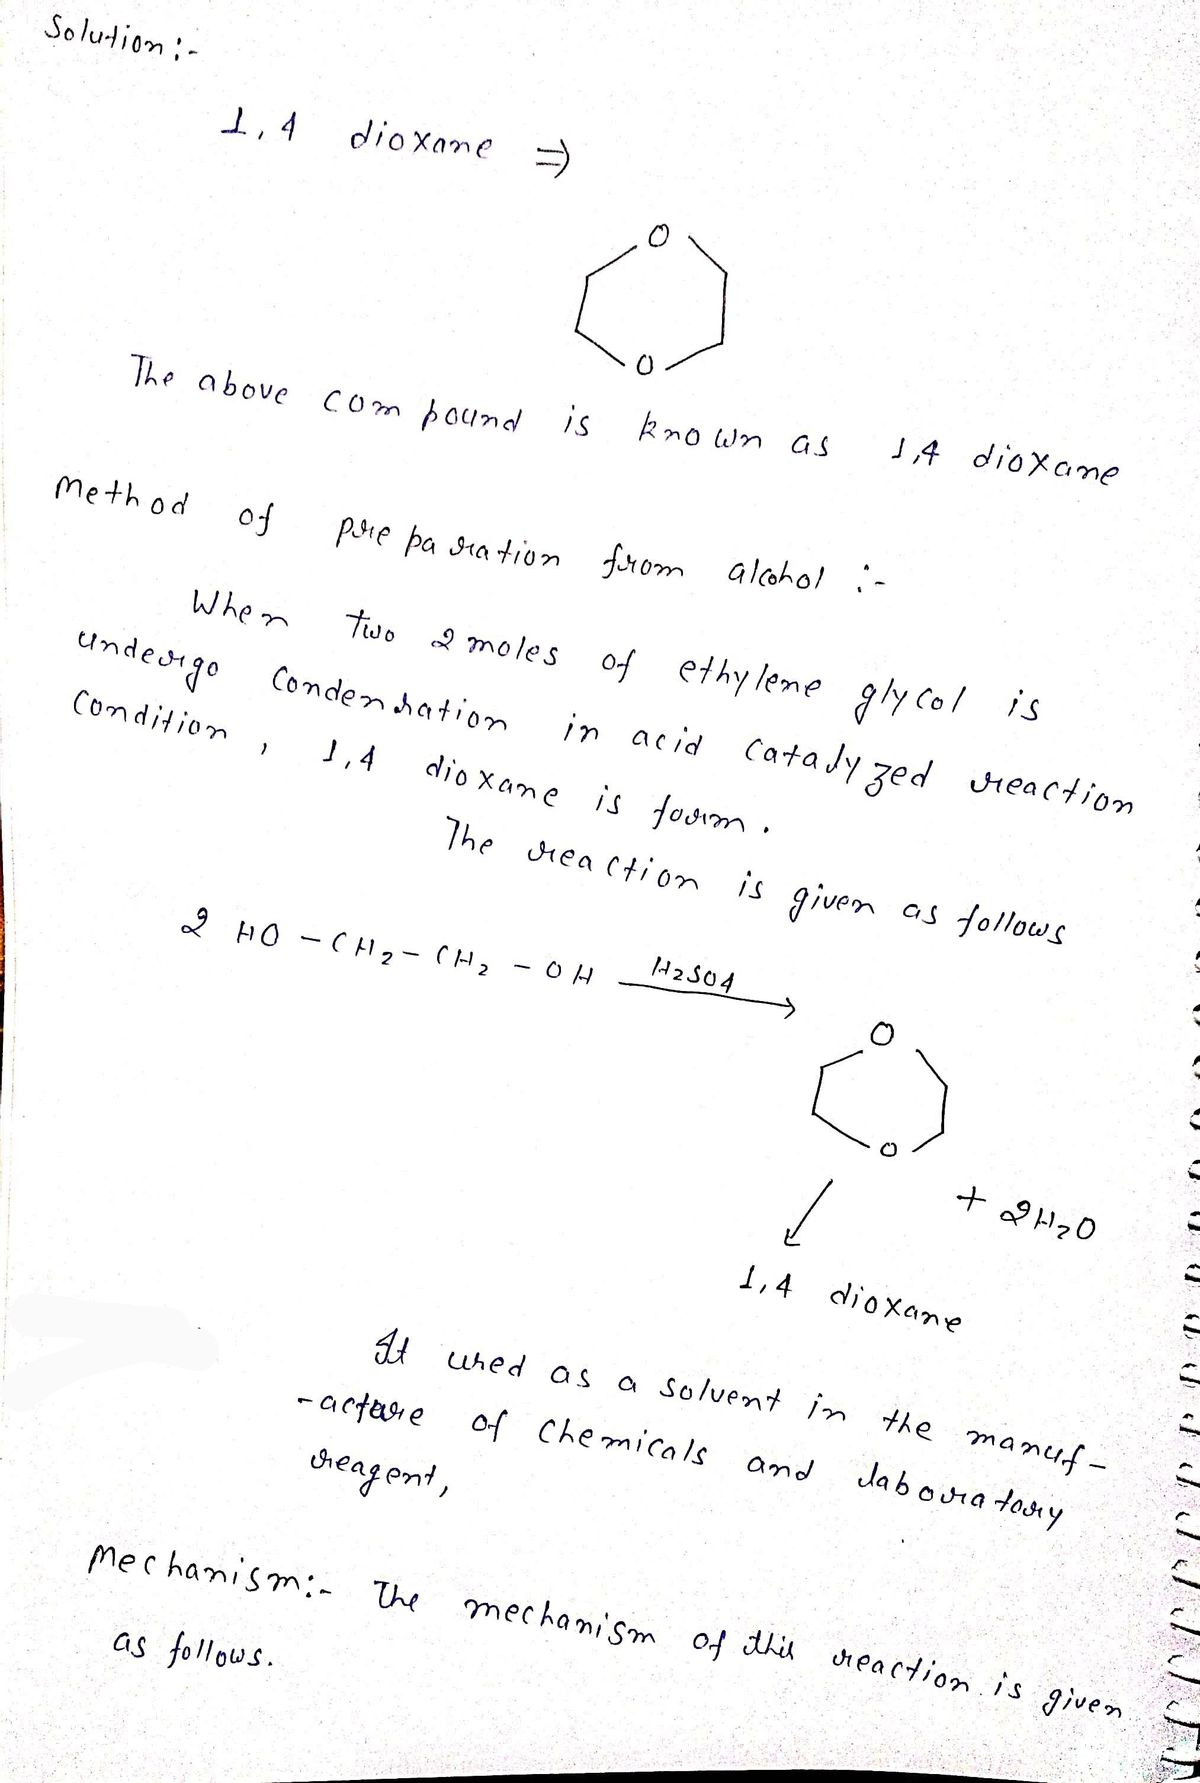 Solution:-
1,4 dioxane ⇒
O
O
The above compound is known as 1,4 dioxane
Method of preparation from alcohol :-
When two 2 moles of ethylene glycol is
undergo condensation in acid catalyzed reaction
condition, 1,4 dioxane is form.
The reaction is given as follows
2 HO-CH2-CH2-OH H2SO4
O
O
+ 2H2O
1,4 dioxane
It used as a solvent in the manuf-
-acture of chemicals and laboratory
reagent,
Mechanism:- The mechanism of this reaction is given
as follows.